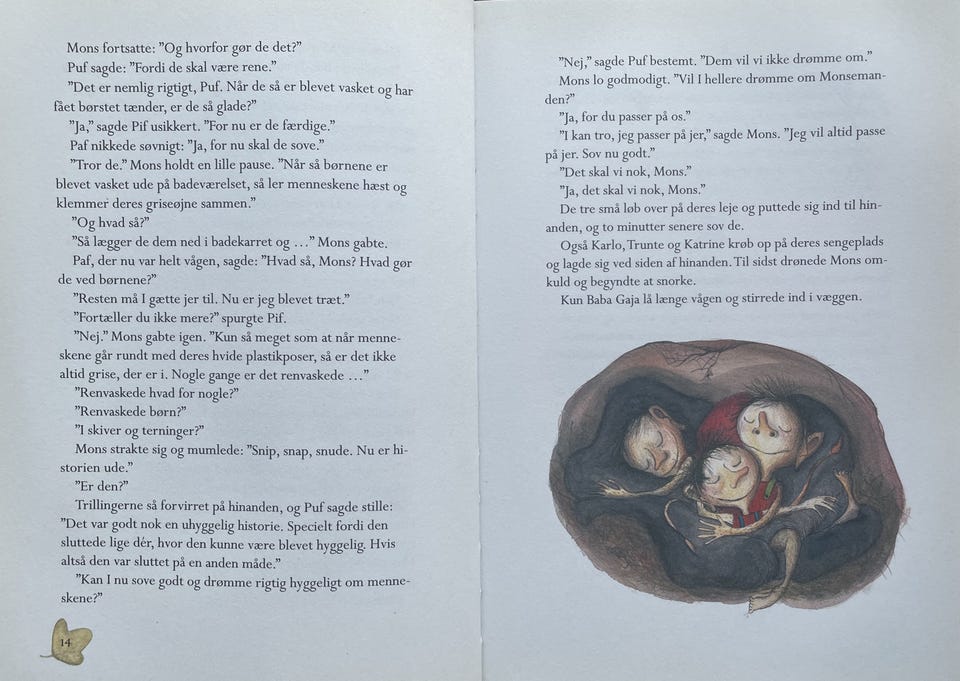 Mons fortsatte: ”Og hvorfor gør de det?”
Puf sagde: ”Fordi de skal være rene.”
”Det er nemlig rigtigt, Puf. Når de så er blevet vasket og har
fået børstet tænder, er de så glade?”
”Ja,” sagde Puf usikkert. ”For nu er de færdige.”
Paf nikkede søvnigt: ”Ja, for nu skal de sove.”
”Tror de.” Mons holdt en lille pause. ”Når så børnene er
blevet vasket ude på badeværelset, så ler menneskene hæst og
klemmer deres griseøjne sammen.”
”Og hvad så?”
”Så lægger de dem ned i badekarret og …” Mons gabte.
Paf, der nu var helt vågen, sagde: ”Hvad så, Mons? Hvad gør
de ved børnene?”
”Resten må I gætte jer til. Nu er jeg blevet træt.”
”Fortæller du ikke mere?” spurgte Pif.
”Nej.” Mons gabte igen. ”Kun så meget som at når menne-
skene går rundt med deres hvide plastikposer, så er det ikke
altid grise, der er i. Nogle gange er det renvaskede …”
”Renvaskede hvad for nogle?”
”Renvaskede børn?”
”I skiver og terninger?”
Mons strakte sig og mumlede: ”Snip, snap, snude. Nu er hi-
storien ude.”
”Er den?”
Trillingerne så forvirret på hinanden, og Puf sagde stille:
”Det var godt nok en uhyggelig historie. Specielt fordi den
sluttede lige dér, hvor den kunne være blevet hyggelig. Hvis
altså den var sluttet på en anden måde.”
”Kan I nu sove godt og drømme rigtig hyggeligt om menne-
skene?”
14
”Nej,” sagde Puf bestemt. ”Dem vil vi ikke drømme om.”
Mons lo godmodigt. ”Vil I hellere drømme om Monseman-
den?”
”Ja, for du passer på os.”
”I kan tro, jeg passer på jer,” sagde Mons. ”Jeg vil altid passe
på jer. Sov nu godt.”
”Det skal vi nok, Mons.”
”Ja, det skal vi nok, Mons.”
De tre små løb over på deres leje og puttede sig ind til hin-
anden, og to minutter senere sov de.
Også Karlo, Trunte og Katrine krøb op på deres sengeplads
og lagde sig ved siden af hinanden. Til sidst drønede Mons om-
kuld og begyndte at snorke.
Kun Baba Gaja lå længe vågen og stirrede ind i væggen.